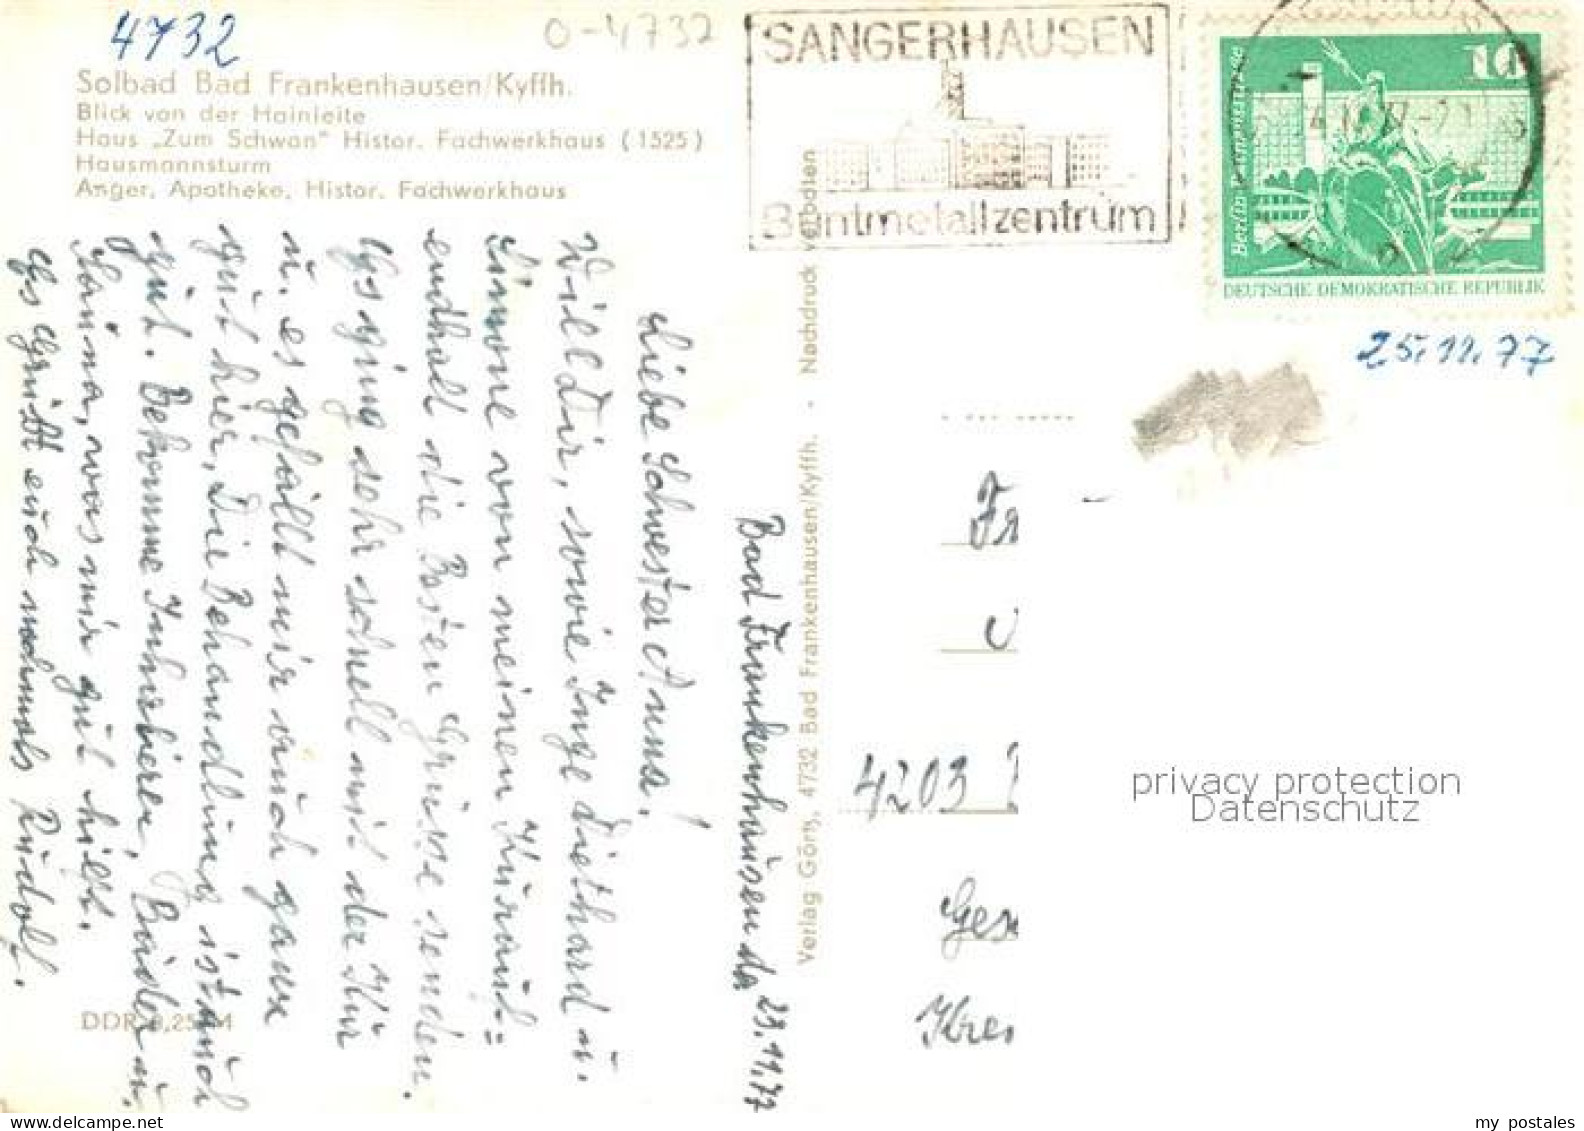 4732
0-4732
Solbad Bad Frankenhausen/Kyffh.
Blick von der Hainleite
Haus „Zum Schwan" Histor. Fachwerkhaus (1525)
Hausmannsturm
Anger, Apotheke, Histor. Fachwerkhaus
SANGERHAUSEN
Buntmetallzentrum
10
Berlin
DEUTSCHE DEMOKRATISCHE REPUBLIK
25.11.77
Bad Frankenhausen d. 23.11.77
Liebe Schwester Anna!
Will Dir, sowie Inge Diethard u.
Simone von meinen Kurauf=
enthalt die Besten Grüsse senden.
Es ging sehr schnell mit der Kur
u. es gefällt mir auch ganz
gut hier, Die Behandlung ist auch
gut. Bekomme Inhalieren, Bäder u.
Sauna, was mir gut hilft.
Es Grüßt euch nochmals Rudolf.
Verlag Görtz, 4732 Bad Frankenhausen/Kyffh. · Nachdruck verboten
DDR 0,25 M
Fr
4203
Ges
Kre
privacy protection
Datenschutz
my postales